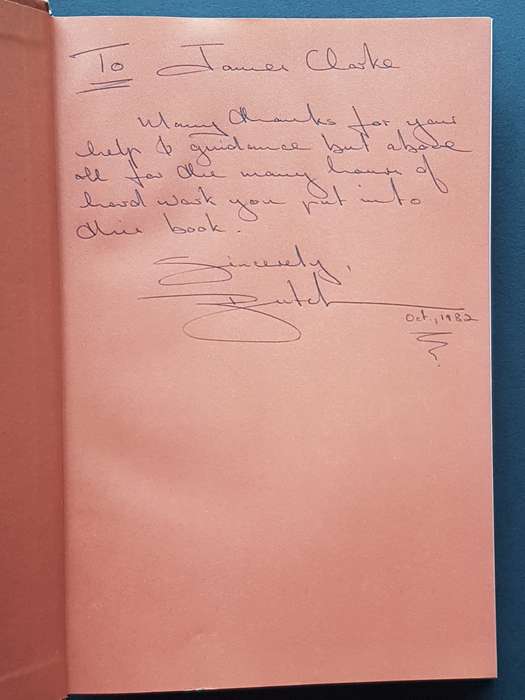 To James Clarke
Many thanks for your
help & guidance but above
all for the many hours of
hard work you put into
this book.
Sincerely,
Dutch
Oct., 1982